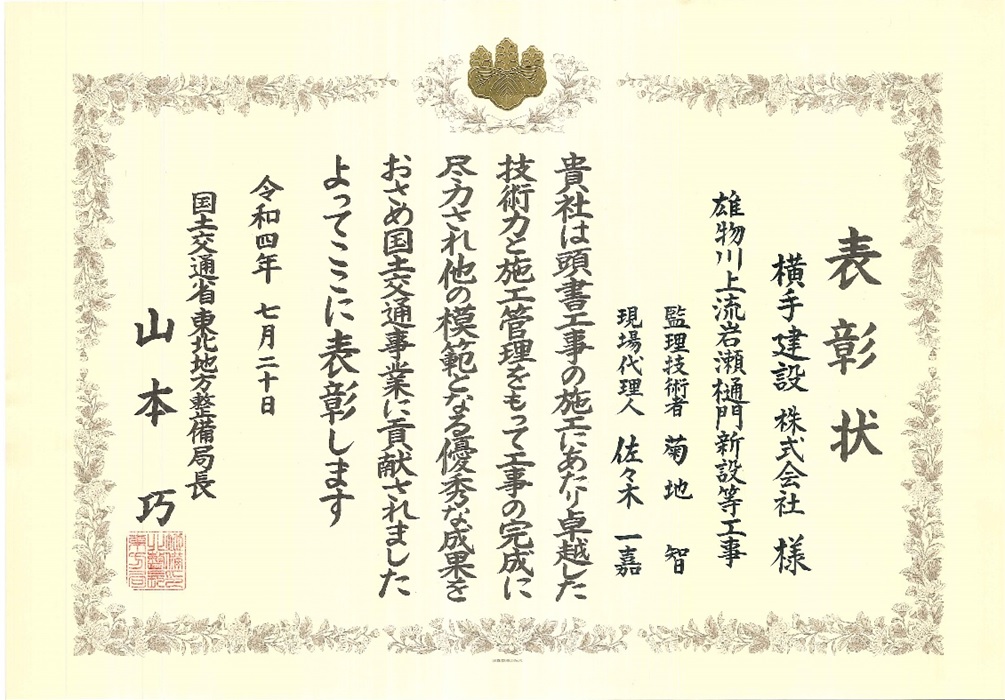 表彰状
横手建設 株式会社 様
雄物川上流岩瀬樋門新設等工事
監理技術者 菊地 智
現場代理人 佐々木 一嘉
貴社は頭書工事の施工にあたり卓越した
技術力と施工管理をもって工事の完成に
尽力され他の模範となる優秀な成果を
おさめ国土交通事業に貢献されました
よってここに表彰します
令和四年 七月二十日
国土交通省東北地方整備局長
山本 巧